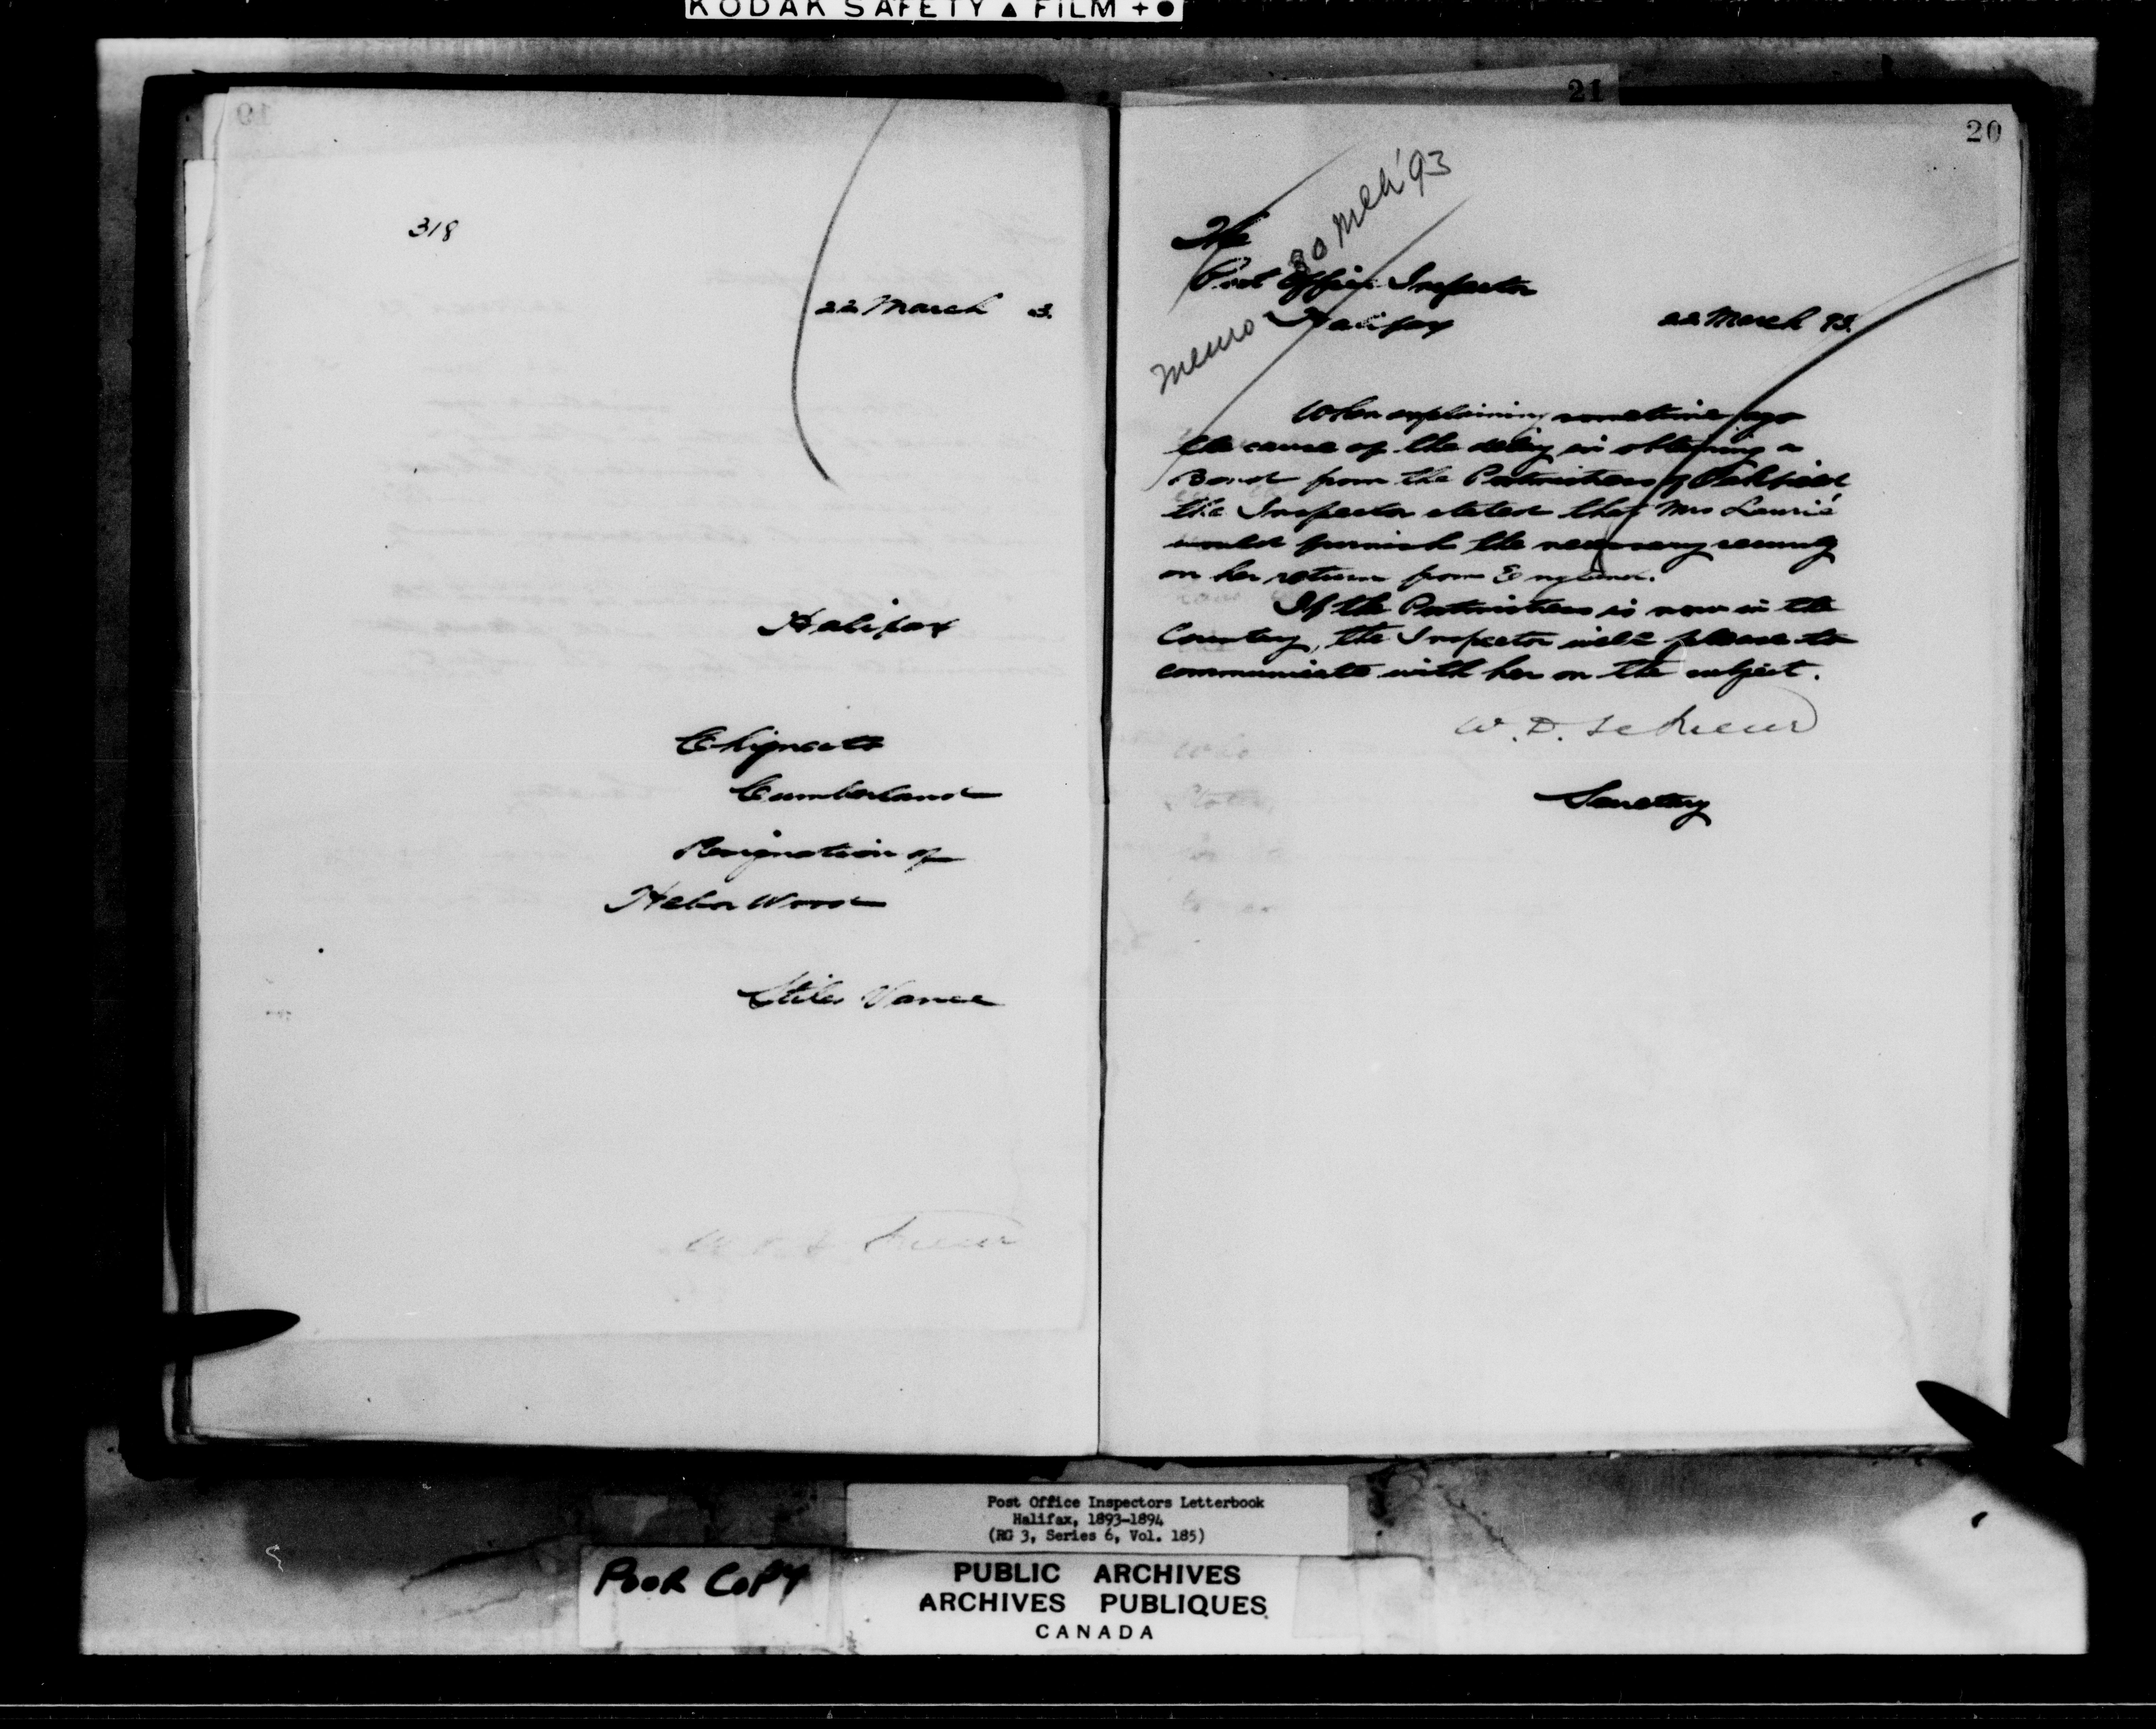 KODAK SAFETY ▲ FILM + ●
19
318
22 March 3.
Halifax
Chignecto
Cumberland
Resignation of
Heber Wood
Stiles Vance
21
20
memo 30 Mch '93
The
Post Office Inspector
Halifax
22 March 93.
When explaining sometime ago
the cause of the delay in obtaining a
Bond from the Postmistress of Oakfield
the Inspector stated that Mrs Laurie
would furnish the necessary security
on her return from England.
If the Postmistress is now in the
Country, the Inspector will please to
communicate with her on the subject.
W. D. LeSueur
Secretary
Post Office Inspectors Letterbook
Halifax, 1893-1894
(RG 3, Series 6, Vol. 185)
POOR COPY
PUBLIC ARCHIVES
ARCHIVES PUBLIQUES
CANADA